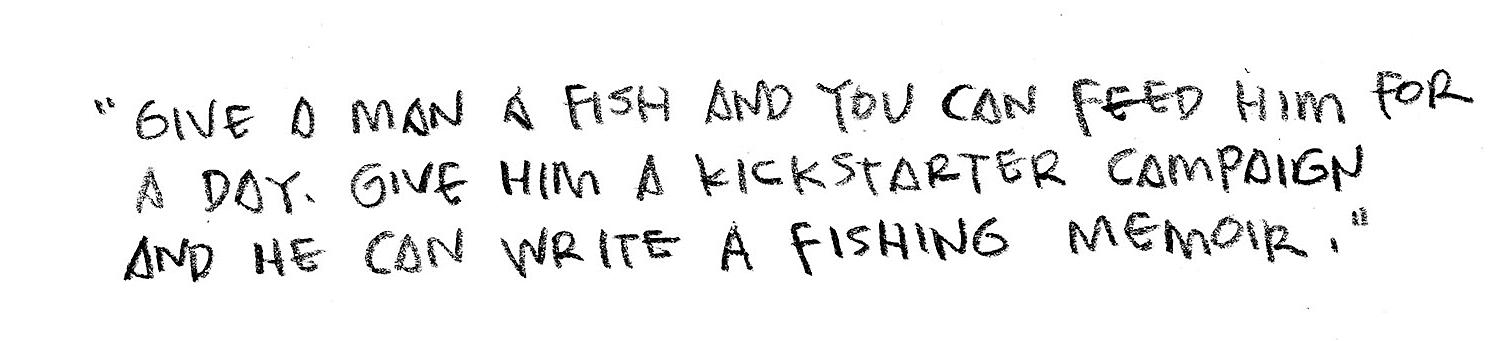 "GIVE A MAN A FISH AND YOU CAN FEED HIM FOR
A DAY. GIVE HIM A KICKSTARTER CAMPAIGN
AND HE CAN WRITE A FISHING MEMOIR."